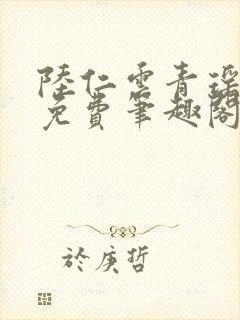 陸仁雲青瑶
免費筆趣閣
於庚哲